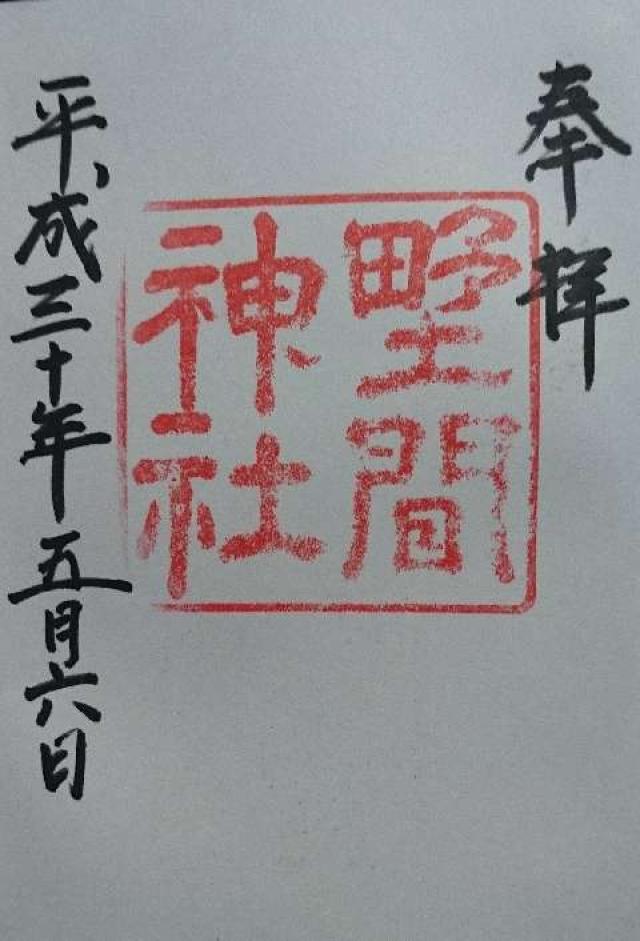 奉拝
野間
神社
平成三十年五月六日